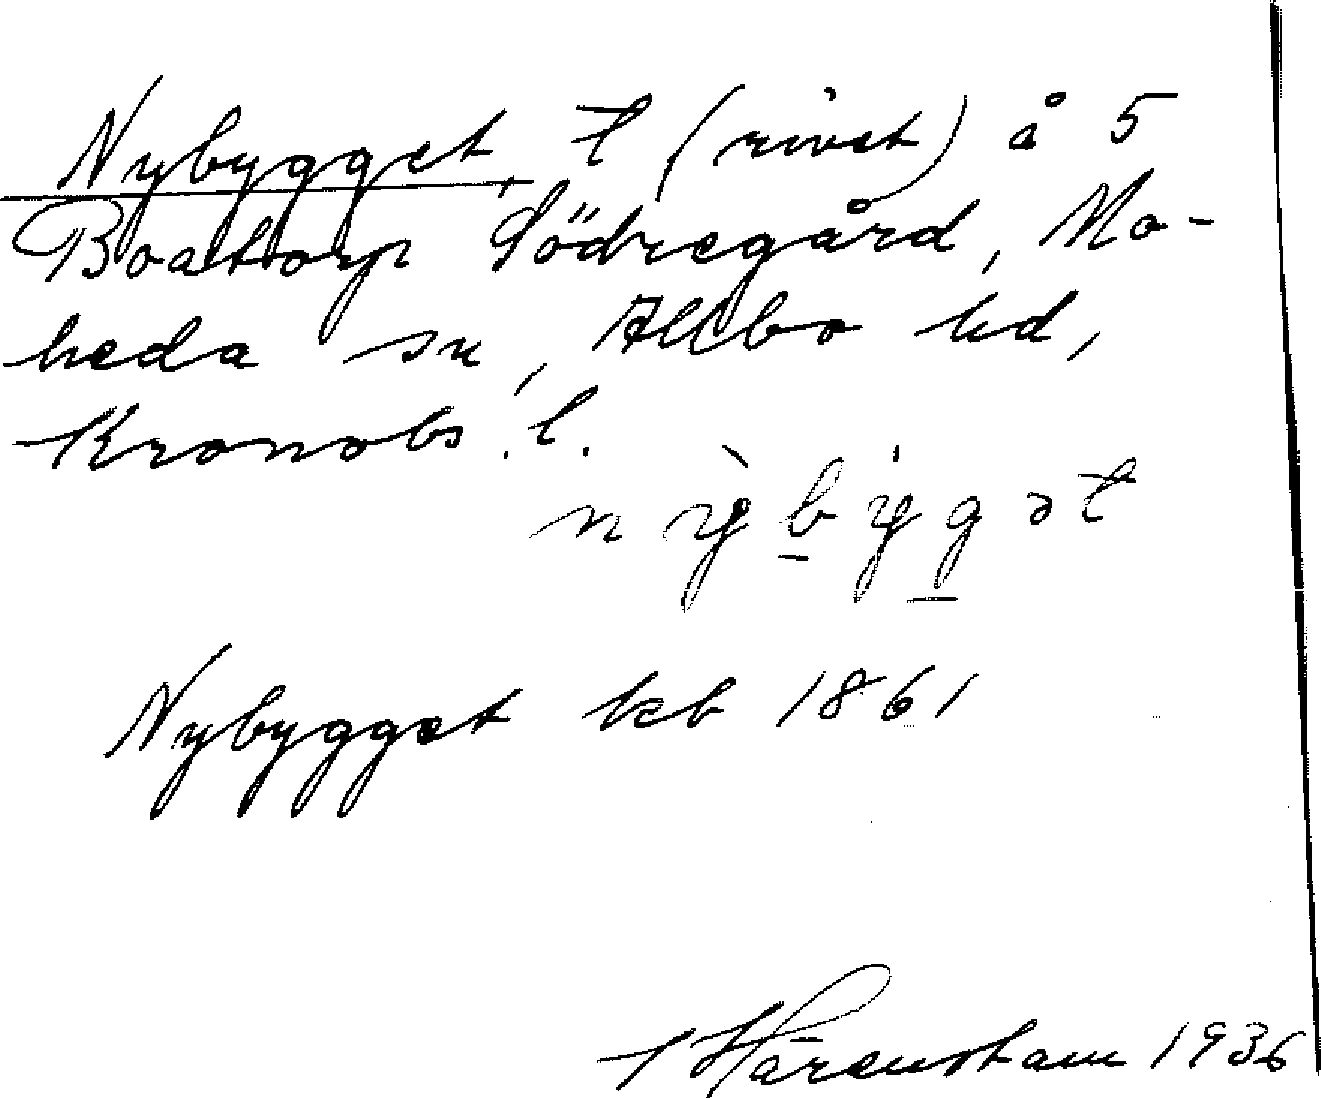 Nybygget, t (rivet) å 5
Boatorp Södregård, Mo-
heda sn, Allbo hd,
Kronobs. l.
nỳbýgət
Nybygget kb 1861
Härenstam 1936